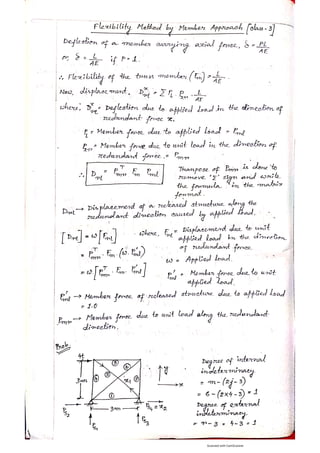 Flexibility Method by Member Approach [Class-3]
Deflection of a member carrying axial force, δ = PL/AE
or, δ = L/AE if P = 1.
∴ Flexibility of the truss member (Fm) = L/AE
Now, displacement, D = Σ Pi Pm L/AE
where, D = Deflection due to applied load in the direction of
redundant force x.
Pi = Member force due to applied load = Pml
Pm = Member force due to unit load in the direction of
redundant force. = Pmn
∴ Dnl = Pmn^T Fm Pml
Transpose of Pmn is done to
remove 'Σ' sign and write
the formula in the matrix
format.
Dnl → Displacement of a released structure along the
redundant direction caused by applied load.
[Dnl] = ω[Fnl]
where, Fnl = Displacement due to unit
applied load in the direction
of redundant force.
= Pmn^T Fm (ω. P'ml)
ω = Applied load.
= ω[Pmn^T Fm P'ml]
P'ml = Member force due to unit
applied load.
P'ml → Member force of released structure due to applied load
= 1.0
Pmn → Member force due to unit load along the redundant
direction.
Prob.
4t
3m
3m
x1
y
x
Degree of internal
indeterminacy
= m - (2j - 3)
= 6 - (2x4 - 3) = 1
Degree of external
indeterminacy
= r - 3 = 4 - 3 = 1
Scanned with CamScanner